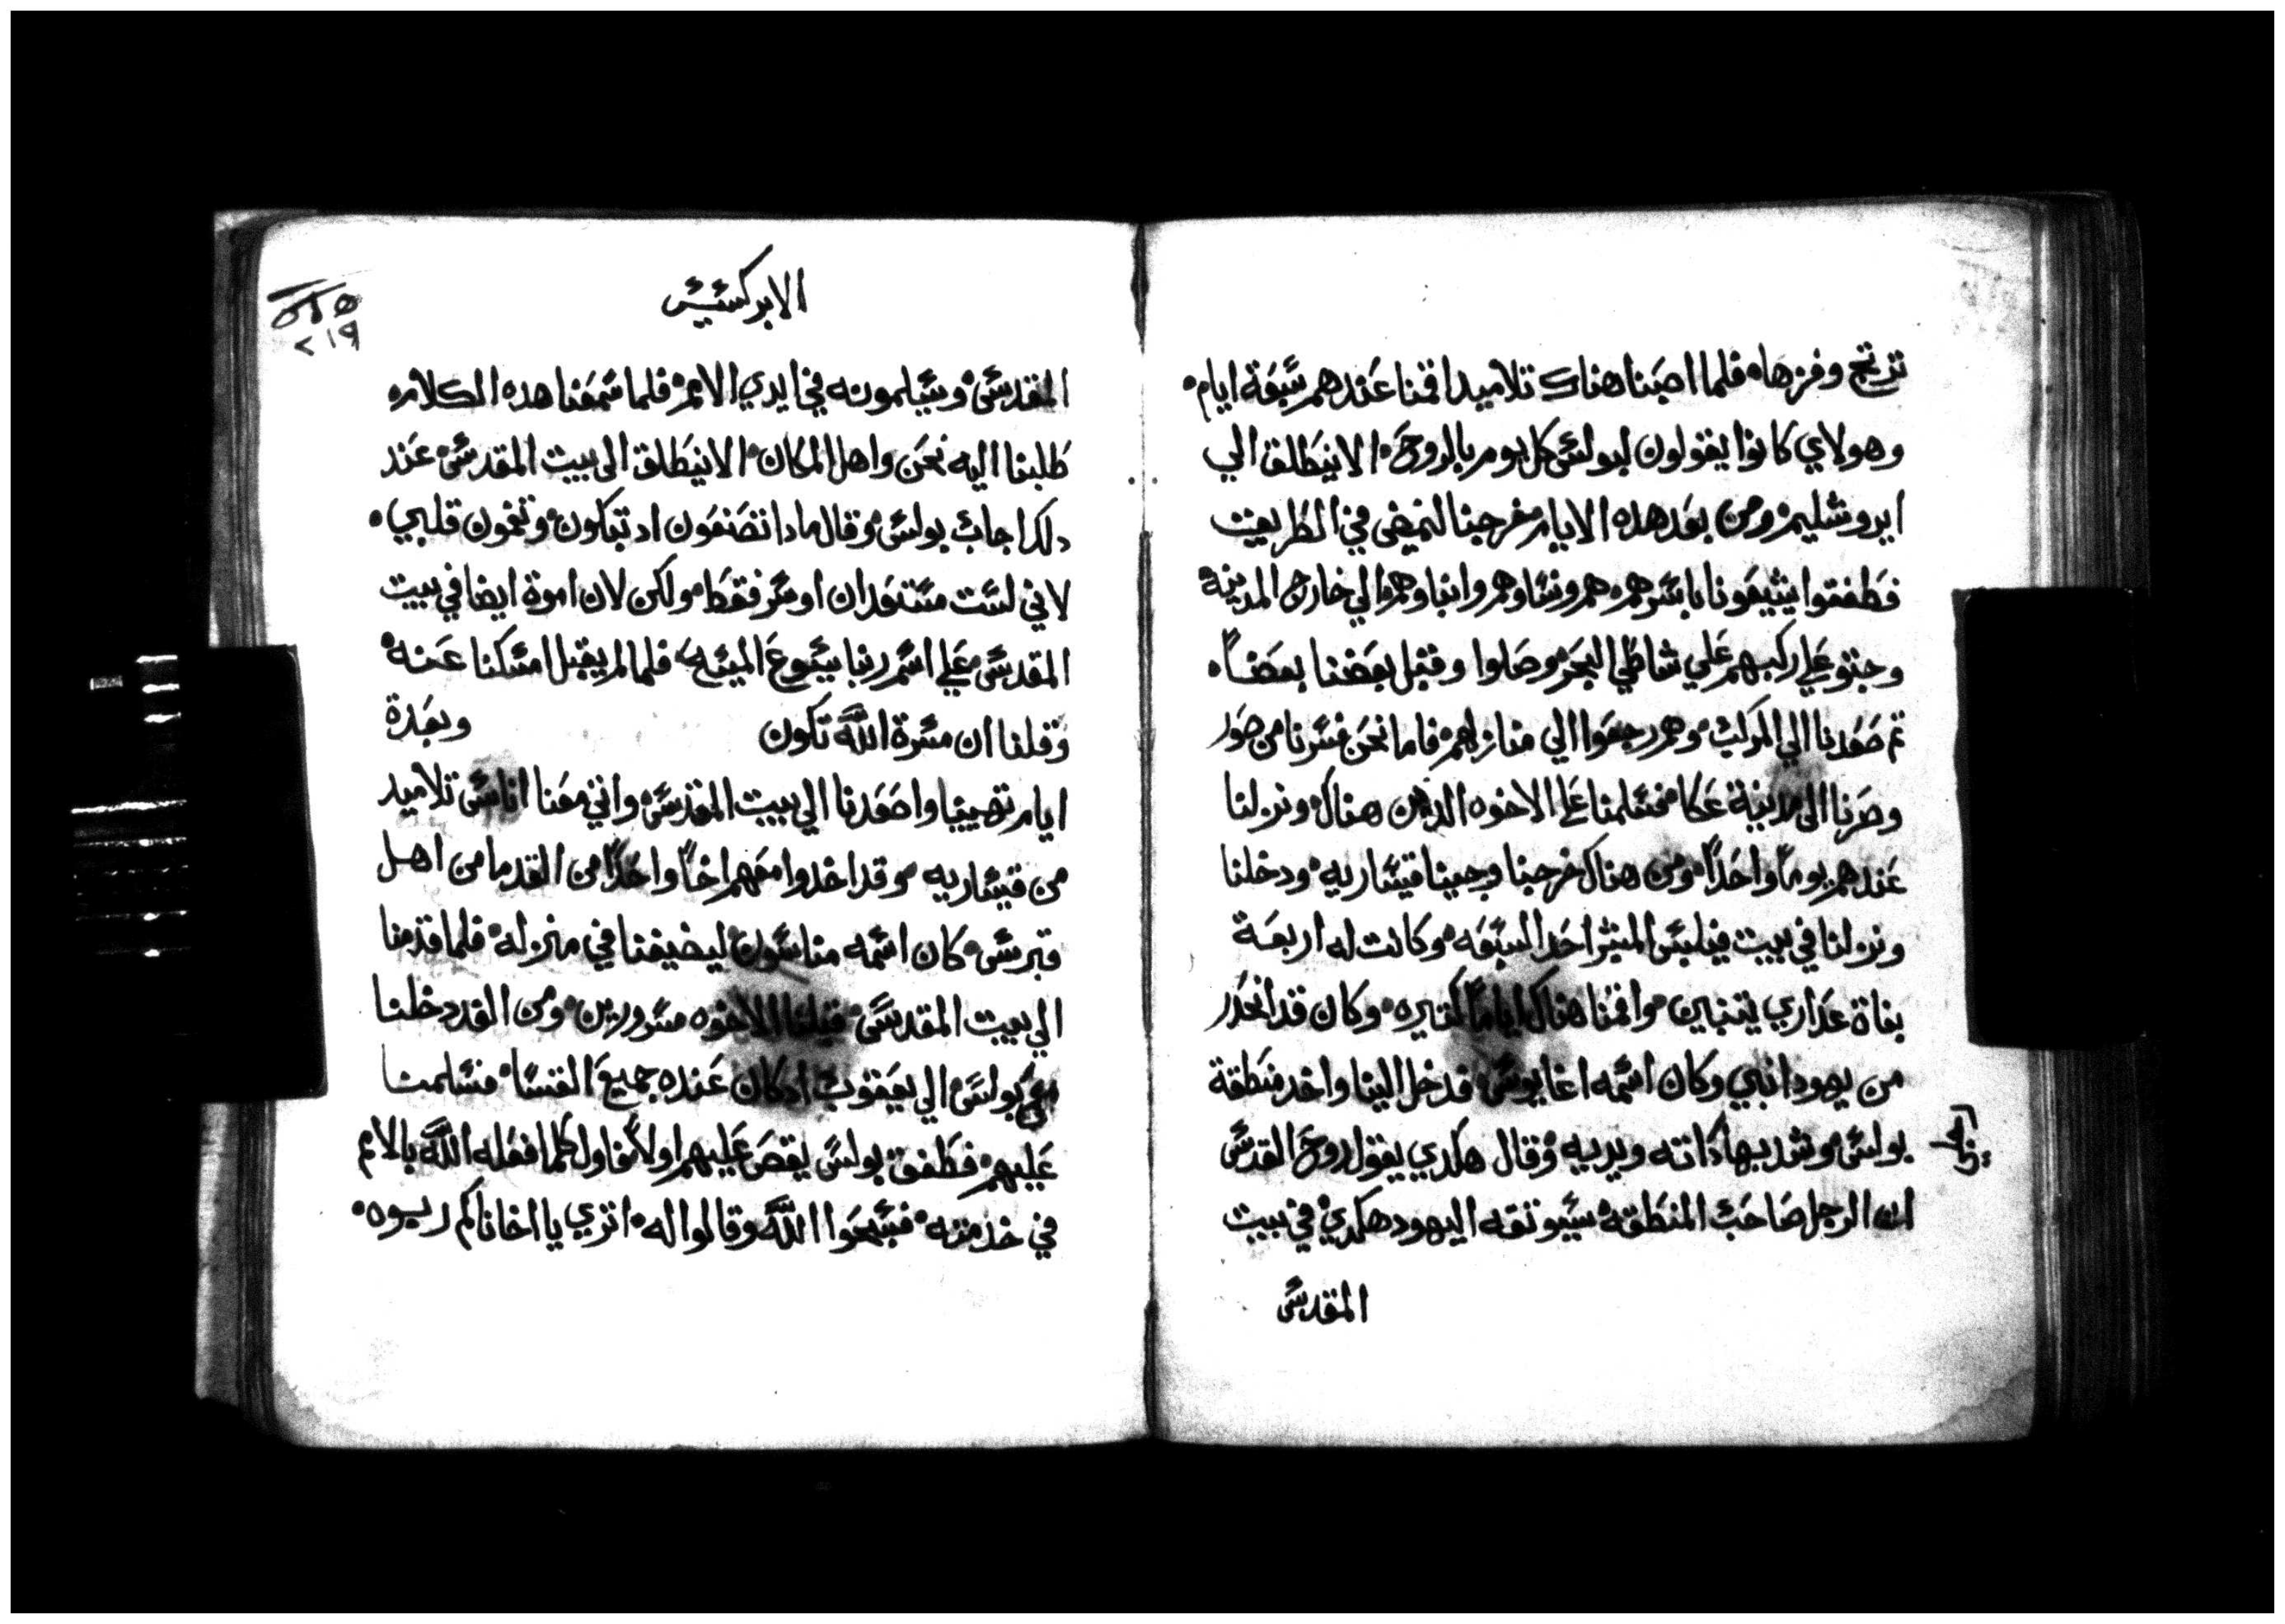 ترتج وفرها فلما اصبنا هناك تلاميدا اقمنا عندهم سبعة ايام
وهولاي كانوا يقولون لبولس كل يوم بالروح الا ينطلق الي
ايروشليم ومن بعد هده الايام خرجنا لنمضى في الطريق
فطفقوا يشيعونا باسرهم هم ونساوهم وابناوهم الي خارج المدينة
وجتو علي ركبهم علي شاطي البحر وصلوا وقبل بعضنا بعضاً
تم صعدنا الي المركب وهم رجعوا الي منازلهم فاما نحن فسرنا من صور
وصرنا الى مدينة عكا فسلمنا على الاخوه الدين هناك ونزلنا
عندهم يوماً واحداً ومن هناك خرجنا وجينا قيساريه ودخلنا
ونزلنا في بيت فيلبس المبشر احد السبعه وكانت له اربعة
بناة عداري يتنبين واقمنا هناك اياماً كتيره وكان قد انحدر
من يهودا نبي وكان اسمه اغابوس فدخل الينا واخد منطقة
بولس وشد بها داته ويديه وقال هكدي يقول روح القدس
ان الرجل صاحب المنطقة سيوتقه اليهود هكدي في بيت
المقدس
الابركسيس
٢١٩
المقدس وسيلمونه في ايدي الامم فلما سمعنا هده الكلام
طلبنا اليه نحن واهل المكان الا ينطلق الى بيت المقدس عند
دلك اجاب بولس وقال مادا تصنعون اد تبكون وتغمون قلبي
لاني لست مستعد ان اوسر فقط ولكن لان اموة ايضا في بيت
المقدس علي اسم ربنا يسوع المسيح فلما لم يقبل امسكنا عنه
وقلنا ان مسرة الله تكون وبعدة
ايام تهيينا واصعدنا الي بيت المقدس واتي معنا اناس تلاميد
من قيساريه وقد اخدوا معهم اخاً واحداً من القدما من اهل
قبرس كان اسمه مناسون ليضيفنا في منزله فلما قدمنا
الي بيت المقدس قبلنا الاخوه مسرورين ومن الغد دخلنا
مع بولس الي يعقوب ادكان عنده جميع القسا فسلمنا
عليهم فطفق بولس يقص عليهم اولاً فاول كلما افعله الله بالامم
في خدمته فسبحوا الله وقالوا له اتري يا اخانا كم ربوه